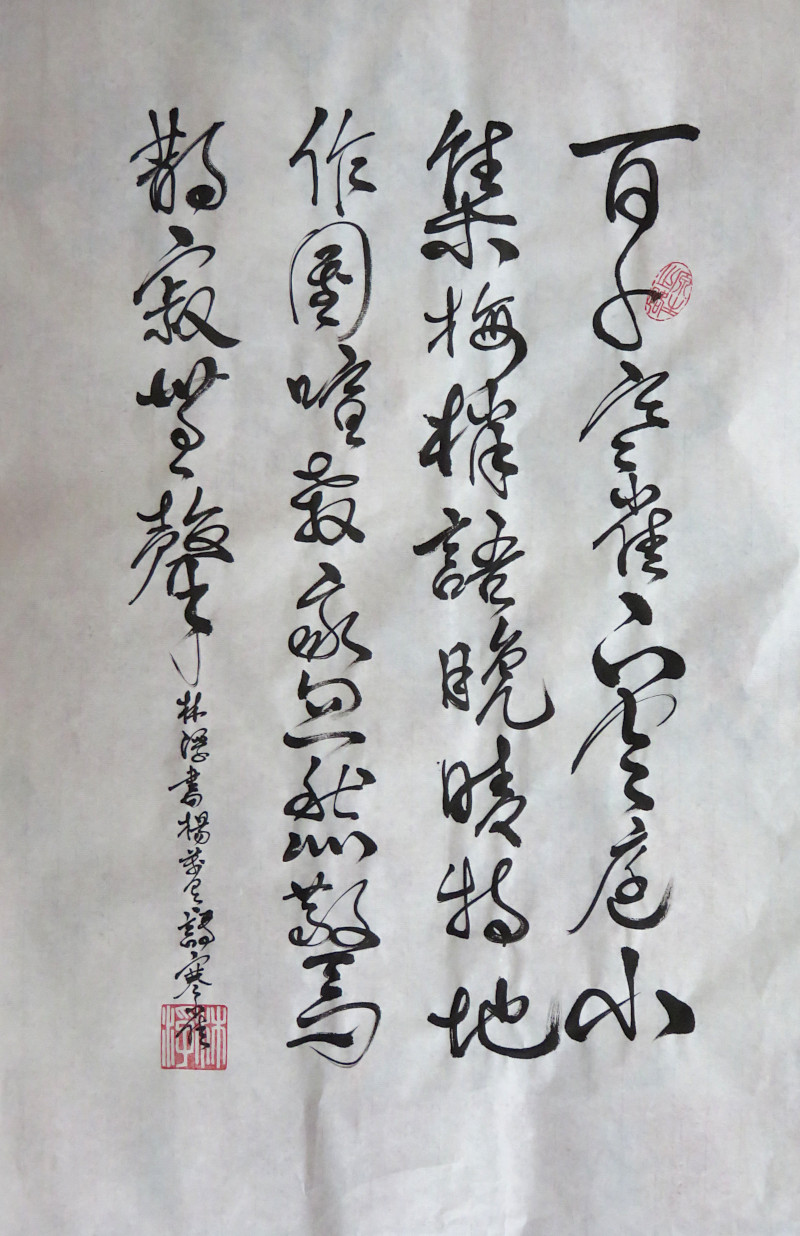 百千寒雀下空庭小
集梅梢語晚晴特地
作團喧殺我忽然驚
散寂無聲
林書楊萬里詩寒雀